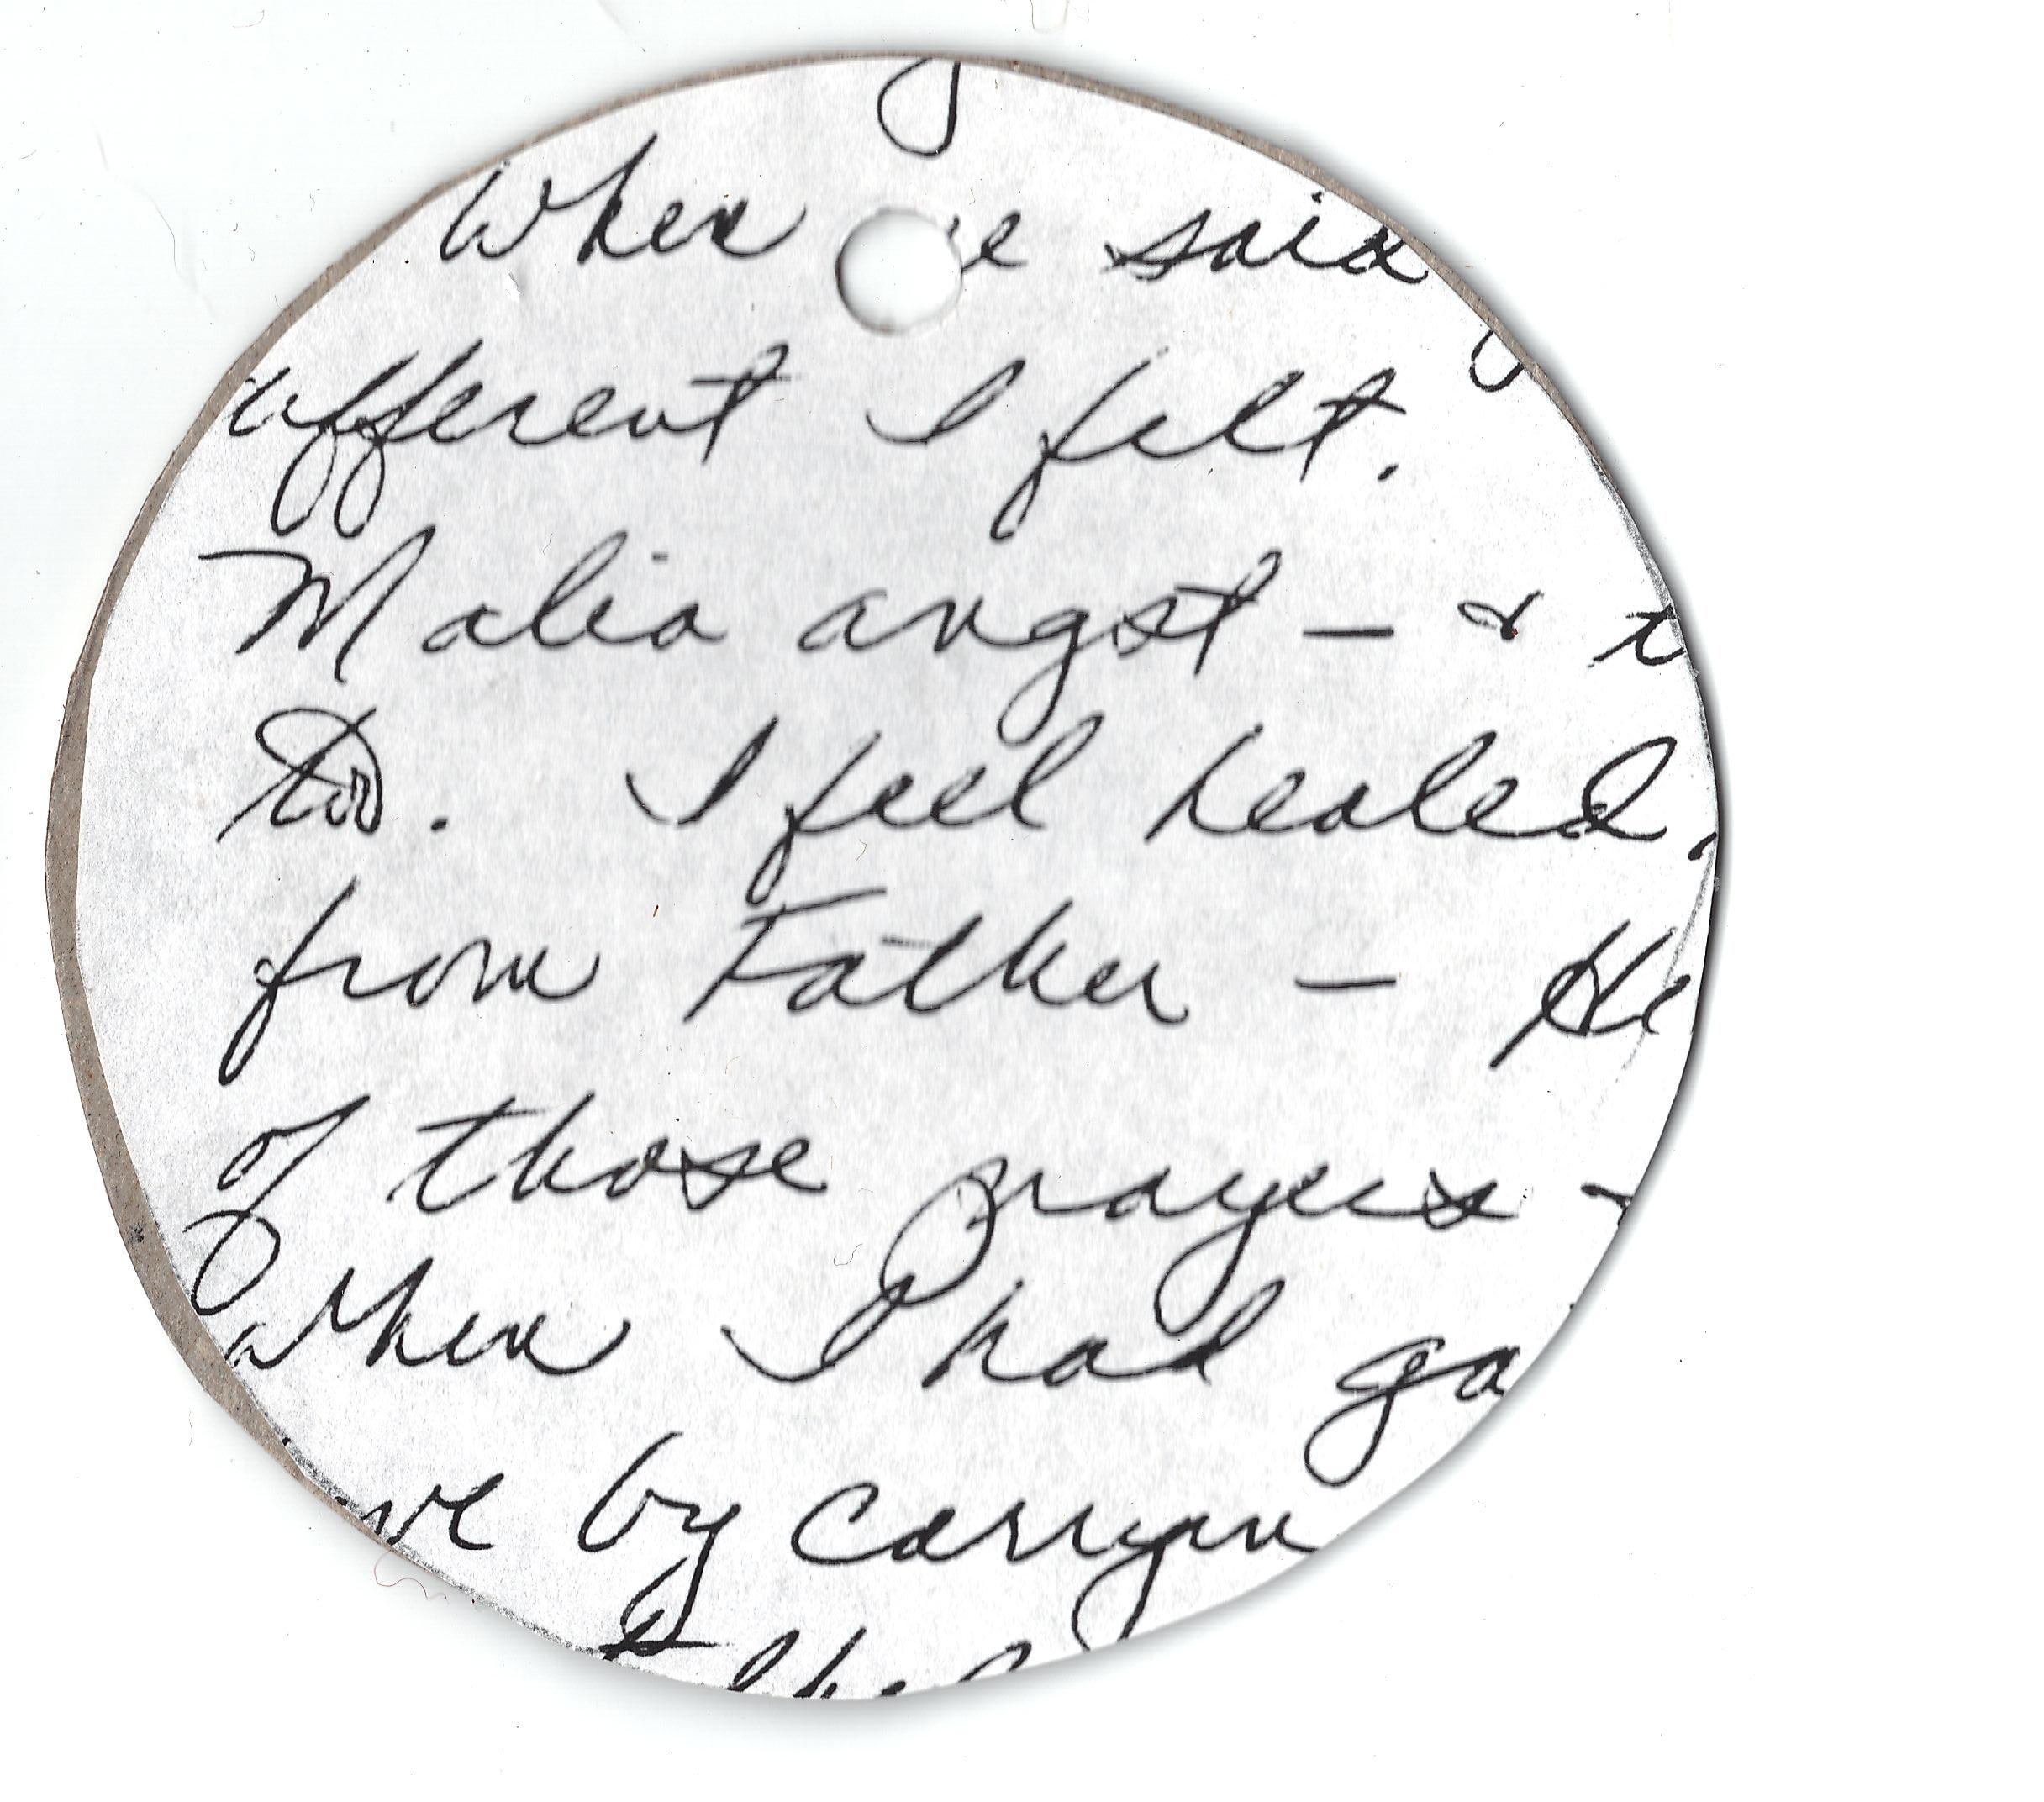 When e said
different I felt.
Malia angst - & t
too. I feel healed,
from Father - He
of those prayers -
when I had go
ve by carryin